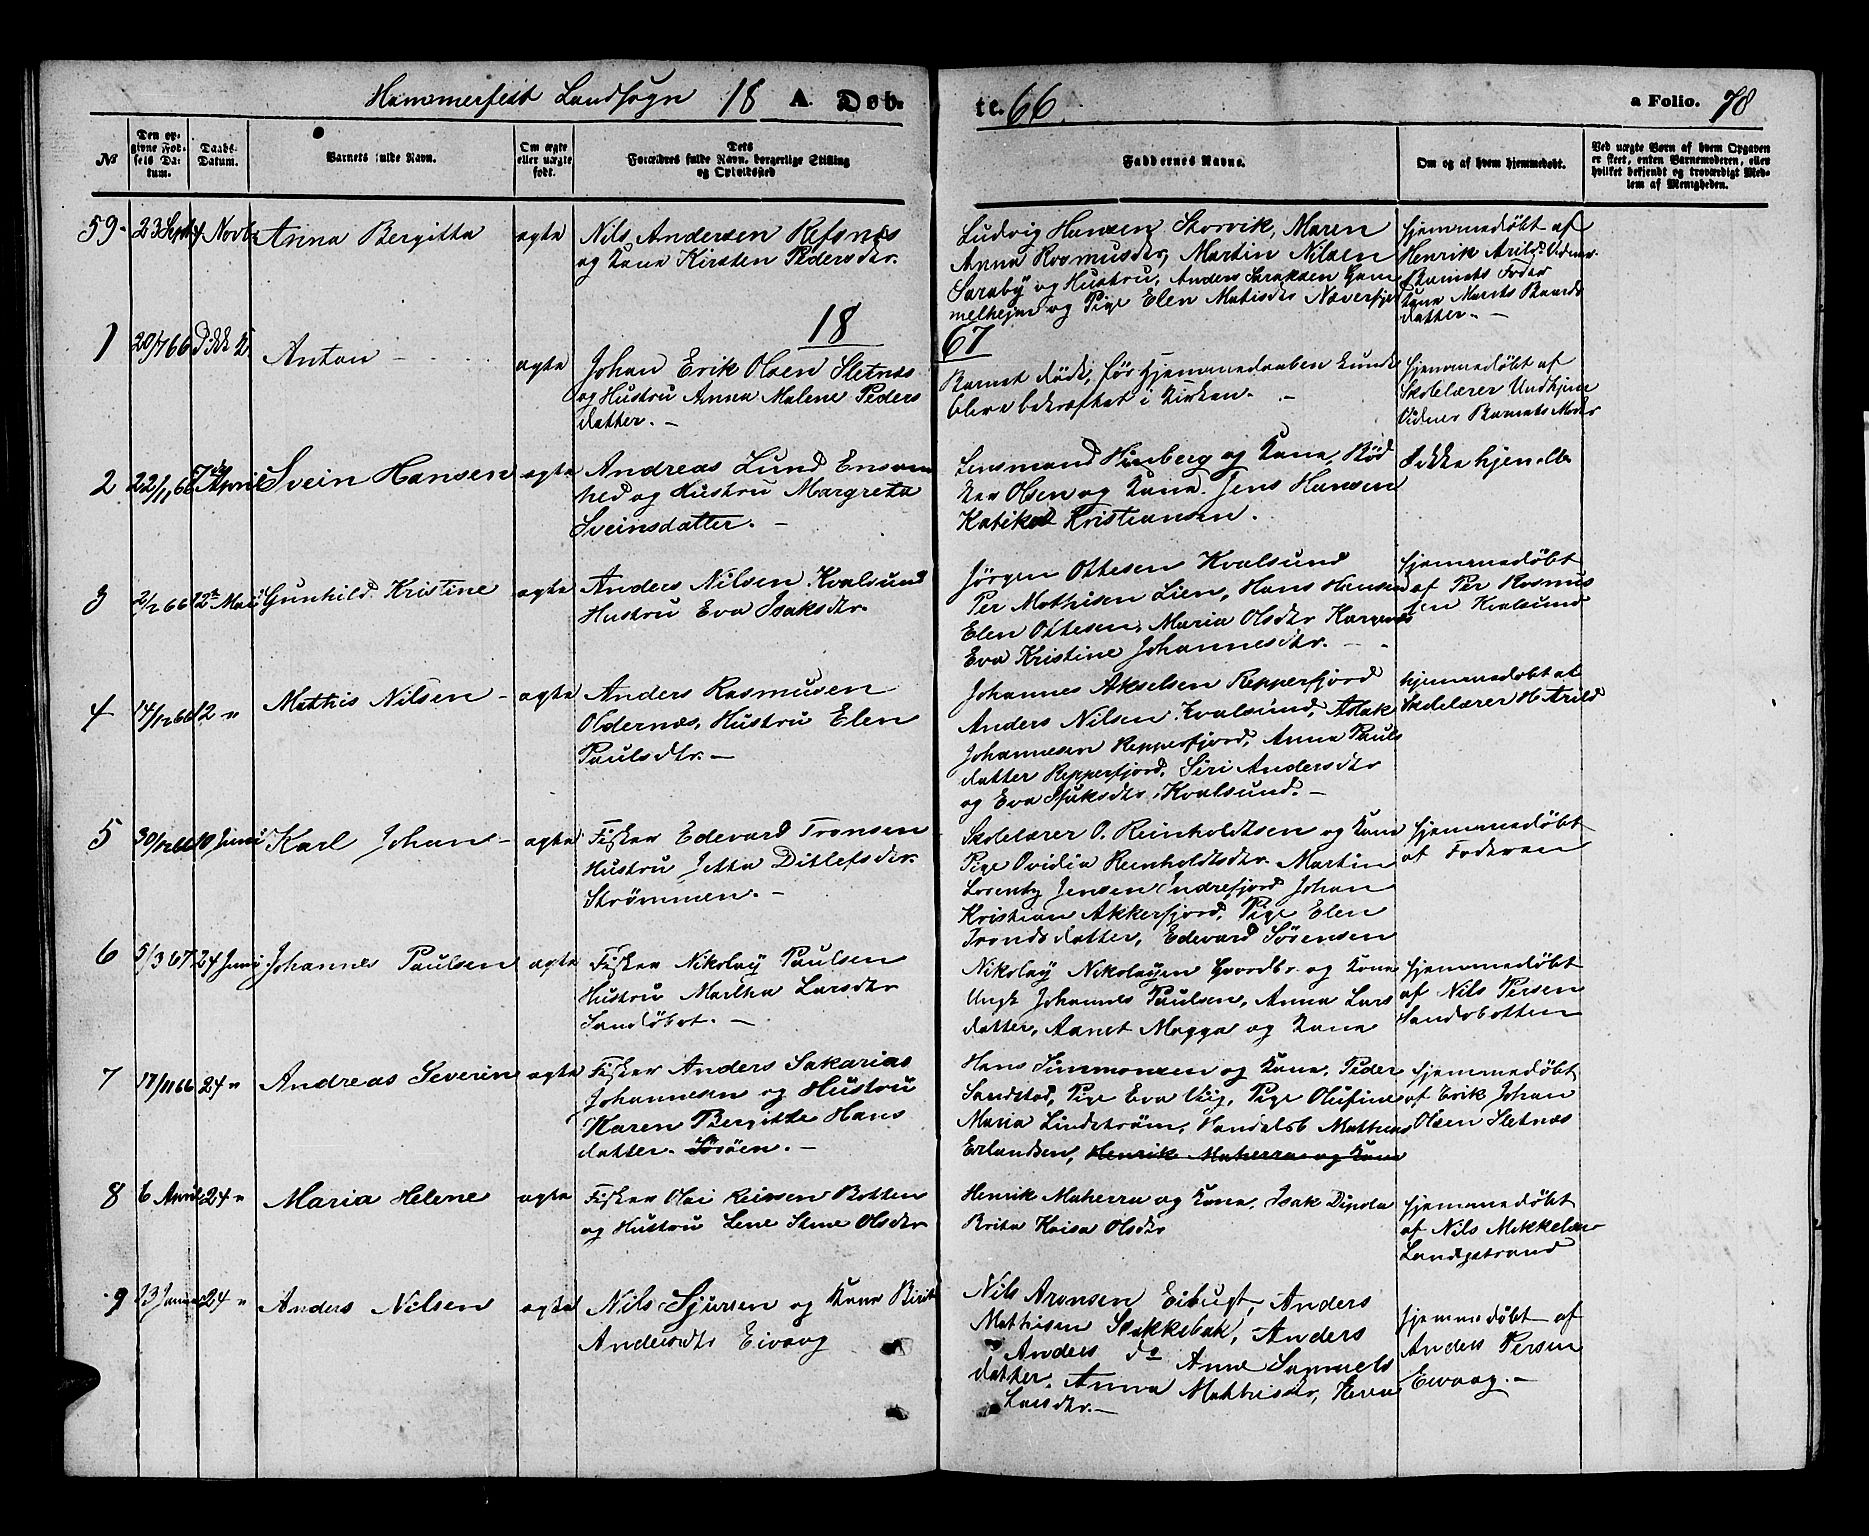 Hammerfest Landsogn 18 A. Døb. te. 66. a Folio. 78
No
Den opgivne Fødsels Datum.
Daabs-Datum.
Barnets fulde Navn.
Om ægte eller uægte født.
Dets Forældres fulde Navn, borgerlige Stilling og Opholdssted
Faddernes Navne.
Om og af hvem hjemmedøbt.
Ved uægte Børn af hvem Opgaven er skeet, enten Barnemoderen, eller hvilket bekjendt og troværdigt Medlem af Menigheden.
59. 23 Sept 4 Novbr Anna Bergitta ægte
Nils Andersen Refsnes
og Kone Kirsten Pedersdtr.
Ludvig Hansen Storvik, Maren
Anna Rasmusdtr, Martin Nilsen
Saraby og Hustru, Anders Isaksen Gam
melhejm og Pige Elen Matisdtr Næverfj
hjemmedøbt af
Henrik Arild. Vidner
Barnets Fader
Kone Marits Baards
datter. -
18 67
1 20/7 66 Ikke K Anton - ægte
Johan Erik Olsen Sletnes
og Hustru Anna Malene Peders
datter. -
Barnet døde, før Hjemmedaaben kunde
blive bekræftet i Kirken. -
hjemmedøbt af
Skolelærer Undhjem
Vidner Barnets Moder
2 22/11 66 7de April Svein Hansen ægte
Andreas Lund Ensom
hed og Hustru Margreta
Sveinsdatter. -
Lensmand Winberg og Kone, Bød
ker Olsen og Kone. Jens Hansen
Kristiansen.
Ikke hjemdb
3 2/12 66 12te Mai Gunhild Kristine ægte
Anders Nilsen Kvalsund
Hustru Eva Isaksdtr.
Jørgen Ottesen Kvalsund
Per Mathisen Lien, Hans Hansen
Elen Ottesen, Maria Olsdtr Kargenes
Eva Kristine Johannesdtr. -
hjemmedøbt
af Per Rasmus
sen Kvalsund
4 14/12 66 12 " Mathis Nilsen - ægte
Anders Rasmusen
Oldernes, Hustru Elen
Paulsdtr. -
Johannes Akselsen Repperfjord
Anders Nilsen Kvalsund, Aslak
Johannesen Repperfjord, Anna Pauls
datter Repperfjord, Siri Andersdtr
og Eva Isaksdtr, Kvalsund. -
hjemmedøbt af
Skolelærer H Arild
5 30/12 66 10 Juni Karl Johan - ægte
Fisker Edevard Tronsen
Hustru Jetta Ditlefsdtr.
Strømmen. -
Skolelærer O. Reinholdtsen og Kone
Pige Ovidia Reinholdtsdtr. Martin
Lorentz Jensen Indrefjord Johan
Kristian Akkerfjord, Pige Elen
Trondsdatter, Edevard Sørensen
hjemmedøbt
af Faderen
6 5/3 67 24 Juni Johannes Paulsen ægte
Fisker Nikolay Paulsen
Hustru Martha Larsdtr
Sandøbot. -
Nikolay Nikolaysen Gaardbr. og Kone
Ungk Johannes Paulsen, Anna Lars
datter, Aanet Magga og Kone
hjemmedøbt
af Nils Persen
Sandøbotten
7 17/11 66 24 " Andreas Severin ægte
Fisker Anders Sakarias
Johannesen og Hustru
Karen Bergitte Hans
datter. Sørøen. -
Hans Simmonsen og Kone, Peder
Sandstad, Pige Eva Vig, Pige Olufine
Maria Lindstrøm, Handelsb Mathias
Erlandsen, Henrik Maherra og Kone
hjemmedøbt
af Erik Johan
Olsen Sletnes
8 6 April 24 " Maria Helene ægte
Fisker Olai Reiersen Botten
og Hustru Lene Stine Olsdtr
Henrik Maherra og Kone, Isak Dipola
Brita Kaisa Olsdtr
hjemmedøbt
af Nils Mikkelsen
Landgstrand
9 23 Januar 24 " Anders Nilsen ægte
Nils Sjursen og Kone Birit
Andersdtr Eivaag
Nils Aronsen Eibugt, Anders
Mathisen Stakkebak, Anders
Anders do Anne Samuels
datter, Anna Mathisdtr, Eva
Larsdtr. -
hjemmedøbt af
Anders Persen
Eivaag. -